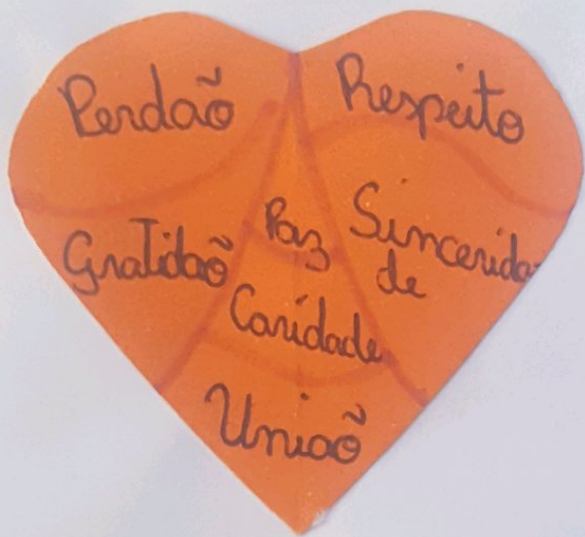 Perdão
Respeito
Gratidaõ
Paz
Sincerida-
de
Caridade
Uniaõ